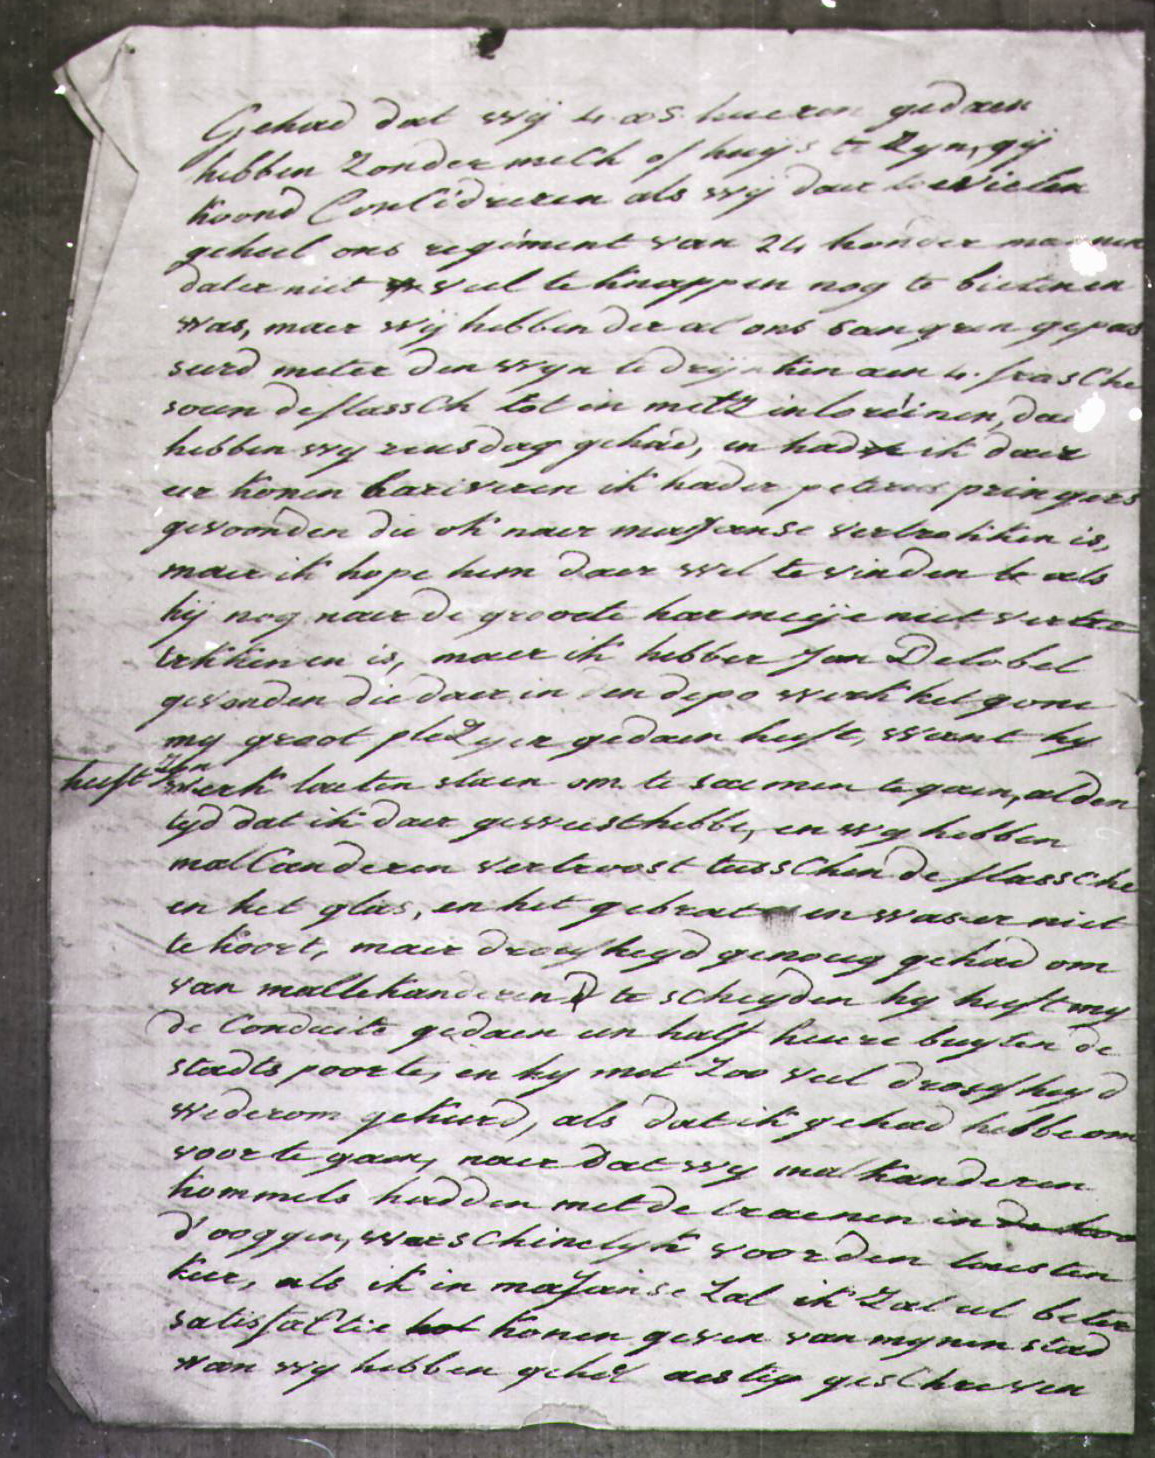 Gehad dat wij 4 a 5 hueren gedaen
hebben zonder melch of huijs te zyn, gij
koond Considreren als wij daer toevielen
geheel ons regiment van 24 honder mannen
dater niet veel te knappen nog te bieten en
was, maer wij hebben der al ons sangren gepas
seerd meter den wyn te drijnken aen 4. frasche
soen de flassch tot in metz in loreinen, daer
hebben wy reusdag gehad, en had ik daer
eer konen hariveren ik hader peterus pringers
gevoonden die ok naer maÿanse vertrokken is,
maer ik hope hem daer wel te vinden als
hij nog naer de groote harmeije niet vertre
trkken en is, maer ik hebber Jan Delobel
gevonden die daer in den depo werk het gone
my groot plezyer gedaen heeft, want hy
heeft zyn werk laeten staen om te saemen te gaen, alden
tyd dat ik daer geweest hebbe, en wy hebben
malCanderen vertroost tusschen de flassche
en het glas, en het gebraet en was er niet
te koort, maer droefheyd genoug gehad om
van mallekanderen te scheyden hy heeft my
de Conduite gedaen een half heure buyten de
stadts poorte, en hy met zoo veel droefheyd
wederom gekeerd, als dat ik gehad hebbe om
voor te gaen, naer dat wy malkanderen
kommels hadden met de traenen in de hoo
d'ooggen, waerschinelyk voor den laesten
keer, als ik in maÿanse zal ik zal ul beter
satisfaCtie hot konen geven van mynen stad
wan wy hebben gehel aestig geschreven